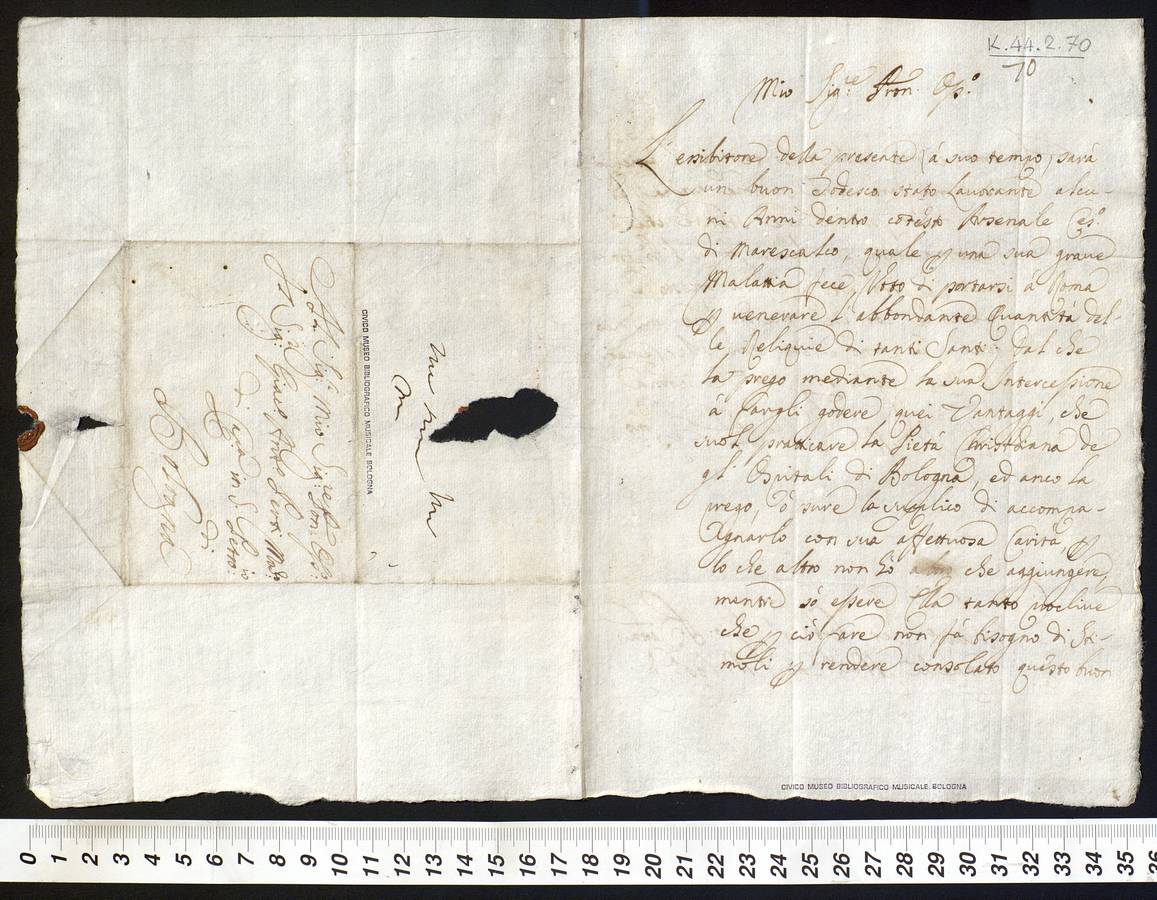 K.44.2.70
70
Mio Sig.re Pron. Os.o
L'essibitore della presente (à suo tempo) sarà
un buon Todesco stato Lavorante alcu-
ni Anni dentro cotesto Arsenale Ces.o
di Marescalco, quale p una sua grave
Malattia fece Voto di portarsi à Roma
p venerare l'abbondante Quantità del-
le Reliquie di tanti Santi. Dal che
la prego mediante la sua Intercessione
à fargli godere quei Vantaggi che
suol pratticare la Pietà Christiana de
gl'Ospitali di Bologna, ed anco la
prego, ò pure la supplico di accompa-
gnarlo con sua affettuosa Carità, p
lo che altro non hò che aggiungere,
mentre sò essere Ella tanto proclive
che p ciò fare non fà bisogno di sti-
moli p rendere consolato questo buon
CIVICO MUSEO BIBLIOGRAFICO MUSICALE BOLOGNA
CIVICO MUSEO BIBLIOGRAFICO MUSICALE BOLOGNA
Sig. Mio Sig.re Pron.
Il Sig. Giac. Ant.o Perti M.ro
di Cap.a in S. Petronio
di
Bologna
0 1 2 3 4 5 6 7 8 9 10 11 12 13 14 15 16 17 18 19 20 21 22 23 24 25 26 27 28 29 30 31 32 33 34 35 36